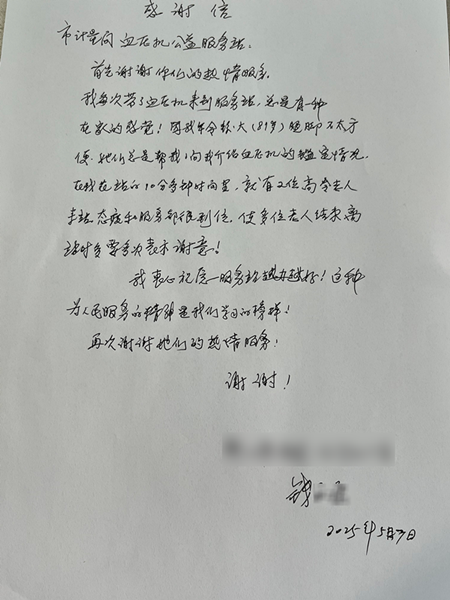 感谢信
市计量院血压机公益服务站.
首先谢谢你们的热情服务.
我每次带了血压机来到服务站,总是有一种
在家的感觉!因我年令较大(89岁)腿脚不太方
便.她们总是帮我询问我介绍血压机的鉴定情况.
在我在站的10分多钟时间里,就有2位高令老人
来站.态度和服务都很到位.使多位老人结束离
站时多要多次表示谢意!
我衷心祝愿服务站越办越好!这种
为人民服务的精神是我们学习的榜样!
再次谢谢她们的热情服务!
谢谢!
钱
2025年5月7日